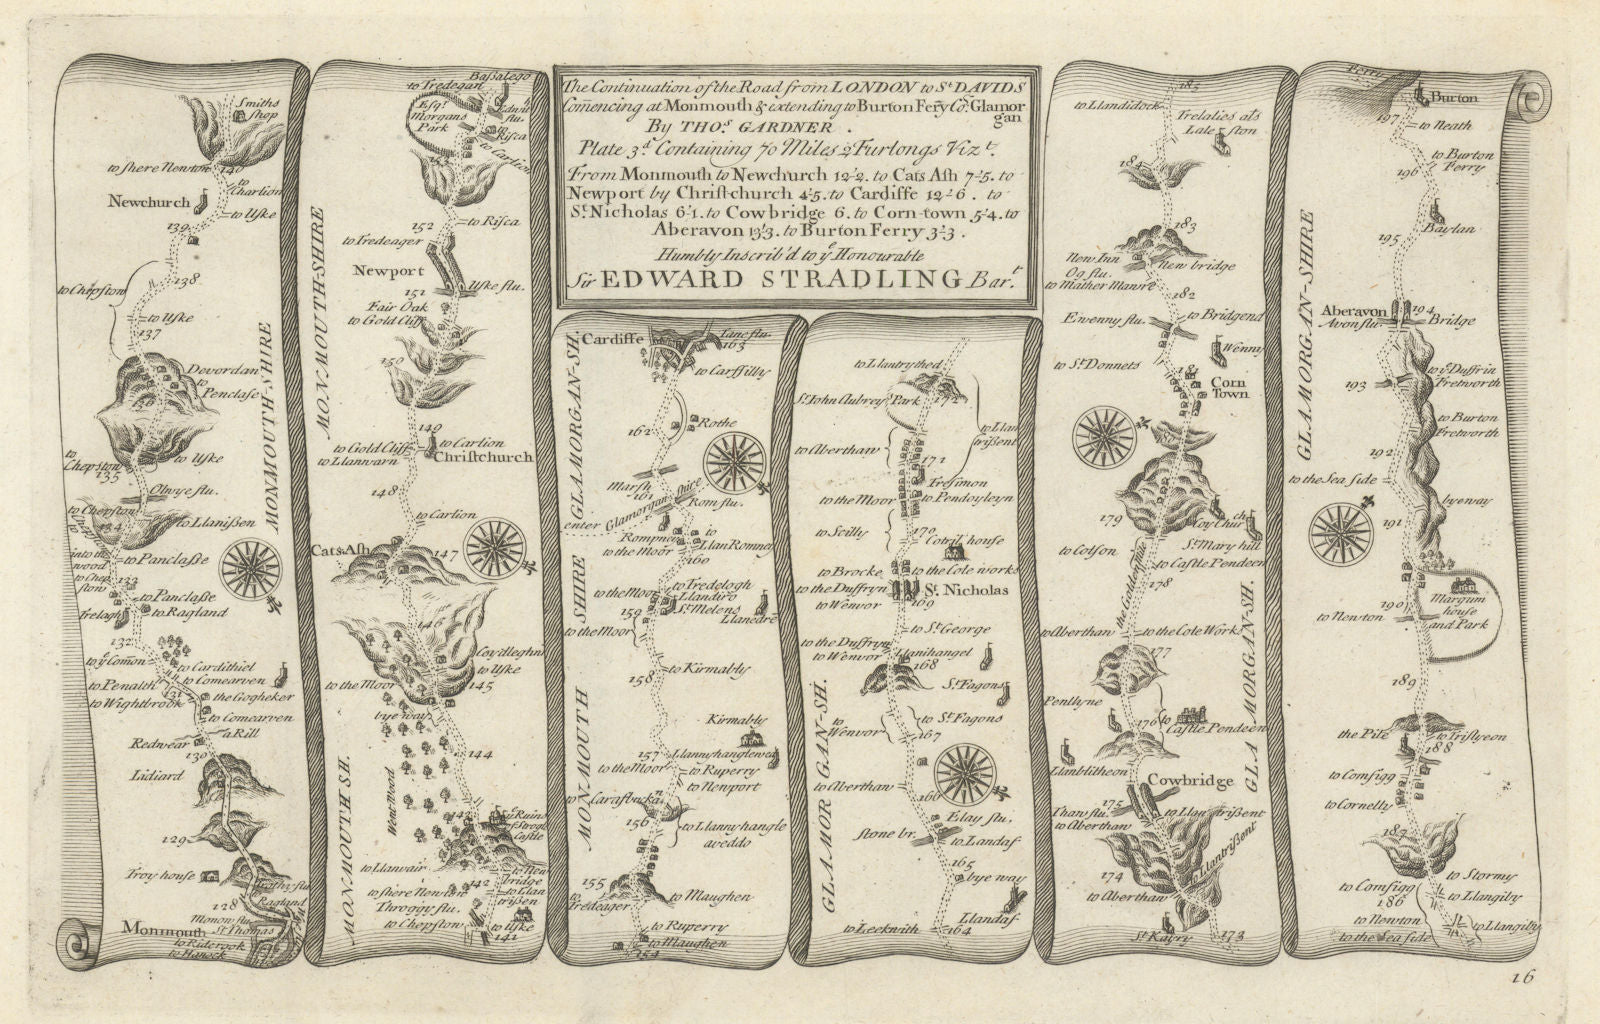 The Continuation of the Road from LONDON to St. DAVIDS
Comencing at Monmouth & extending to Burton Fery Co. Glamor
gan
By THOs. GARDNER.
Plate 3d. Containing 70 Miles 2 Furlongs Vizt.
From Monmouth to Newchurch 12-2. to Cats Ash 7-5. to
Newport by Christchurch 4-5. to Cardiffe 12-6. to
St. Nicholas 6-1. to Cowbridge 6. to Corn-town 5-4. to
Aberavon 13-3. to Burton Ferry 3-3.
Humbly Inscrib'd to ye Honourable
Sir EDWARD STRADLING Bart.
Smiths
shop
to shere Newton
140
to
Charlion
Newchurch
to Uske
139
138
to Chepstow
to Uske
137
MONMOUTH-SHIRE
Devordan
to
Penclase
to
Chepstow
to Uske
135
Olwye flu.
to Chepston
134
to Llanissen
into the
wood
to Panclasse
to Chep
ston
133
to Panclasse
Trelagh
to Ragland
132
to ye Comon
to Cardithiel
to Comearven
to Penalth
131
to Wightbrook
the Goghekor
to Comearven
a Rill
Redwear
130
Lidiard
129
Troy house
Trothy flu
128
Ragland
Monow flu
Monmouth
St Thomas
to Ridcrook
to Hanock
Bassalego
to Tredegan
Esqr.
Morgans
Park
Risca
to Carlion
153
152
to Risca
to Tredeager
Newport
151
Uske flu.
Fair Oak
to Gold Cliff
150
MON.MOUTH-SHIRE
149
to Gold Cliff
to Carlion
to Llanwarn
Christchurch
148
to Carlion
Cats Ash
147
146
Coydleghn
to Uske
to the Moor
145
bye way
144
Went Wood
MON.MOUTH SH.
143
ye Ruins
of Strogle
Castle
to Llanvair
to New
bridge
to shere Newton
142
to Llan
trissen
Throggy flu.
to Chepston
to Uske
141
Cardiffe
Tane flu.
163
to Carffilly
GLAMORGAN-SH.
Rothe
162
Marsh
161
Rom flu.
enter Glamorgan-shire
Rompney
to the Moor
to
Llan Romney
160
to the Moor
to Tredelogh
Llandiro
159
St. Melens
Llanedre
to the Moor
to Kirmably
158
MON-MOUTH SHIRE
Kirmably
157
Llannyhanglewed
to the Moor
to Ruperry
to Newport
156
to Llannyhangle
aveddo
155
to
Tredeager
to Maughen
to Ruperry
to Maughen
154
to Llantrythed
Sr. John Aubrey's Park
172
to Llan
trissent
to Aberthaw
171
Tresimon
to the Moor
to Pendoyleyn
to Scilly
170
Cotril house
to Brocke
to the Cole works
to the Duffryn
St. Nicholas
to Wenvor
169
to St. George
to the Duffryn
to Wenvor
Llanihangel
168
St. Fagons
GLAMOR GAN-SH.
to
Wenvor
to St. Fagons
167
to Aberthaw
166
Elay flu.
Stone br.
to Landaf
165
bye way
Llandaf
to Leekwith
164
185
to Llandidock
Trelalies als
Laleston
184
183
New Inn
Og flu.
New bridge
to Mather Mawre
182
Ewenny flu.
to Bridgend
Wenny
to St. Donnets
181
Corn
Town
179
Coy Church
to Colson
St. Mary hill
the Golden mile
to Castle Pendeen
178
to Aberthan
to the Cole Work
177
GLA MORGAN-SH.
Penllyne
176
to
Castle Pendeen
Llanblitheon
Cowbridge
175
Thaw flu.
to Aberthan
to Llantrissent
to Llantrissent
174
to Aberthan
St. Kayry
173
Ferry
Burton
197
to Neath
to Burton
Ferry
196
Baylan
195
GLAMORGAN-SHIRE
Aberavon
194
Avon flu.
Bridge
to ye. Duffrin
Fretworth
193
to Burton
Fretworth
192
to the Sea side
byeway
191
190
Margum
house
and Park
to Newton
189
the Pile
to Trislyeon
188
to Comsigg
to Cornelly
187
to Stormy
to Comsigg
186
to Llangiby
to Newton
to Llangiby
to the Sea side
16